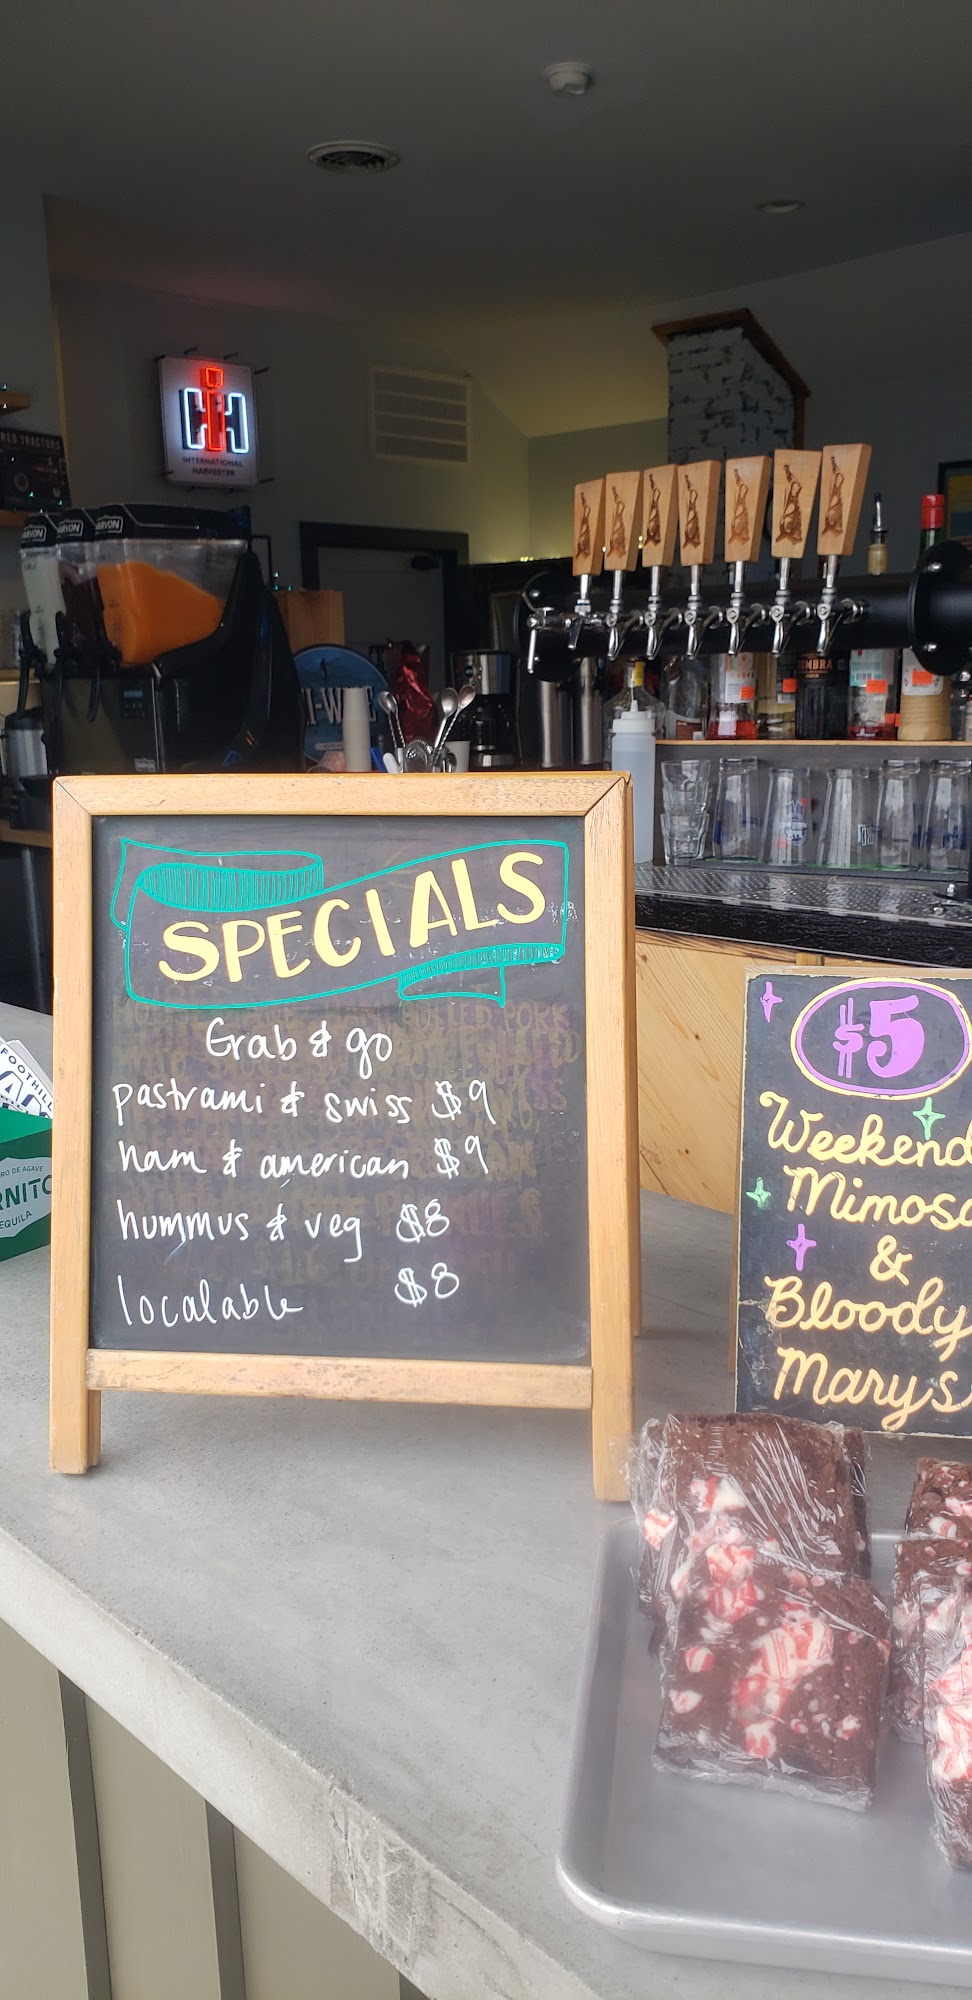 INTERNATIONAL
HARVESTER
RED TRACTORS
SPECIALS
Grab & go
pastrami & swiss $9
ham & american $9
hummus & veg $8
localable $8
$5
Weekend
Mimosa
&
Bloody
Marys
FOOTHILL
RO DE AGAVE
RNITO
EQUILA